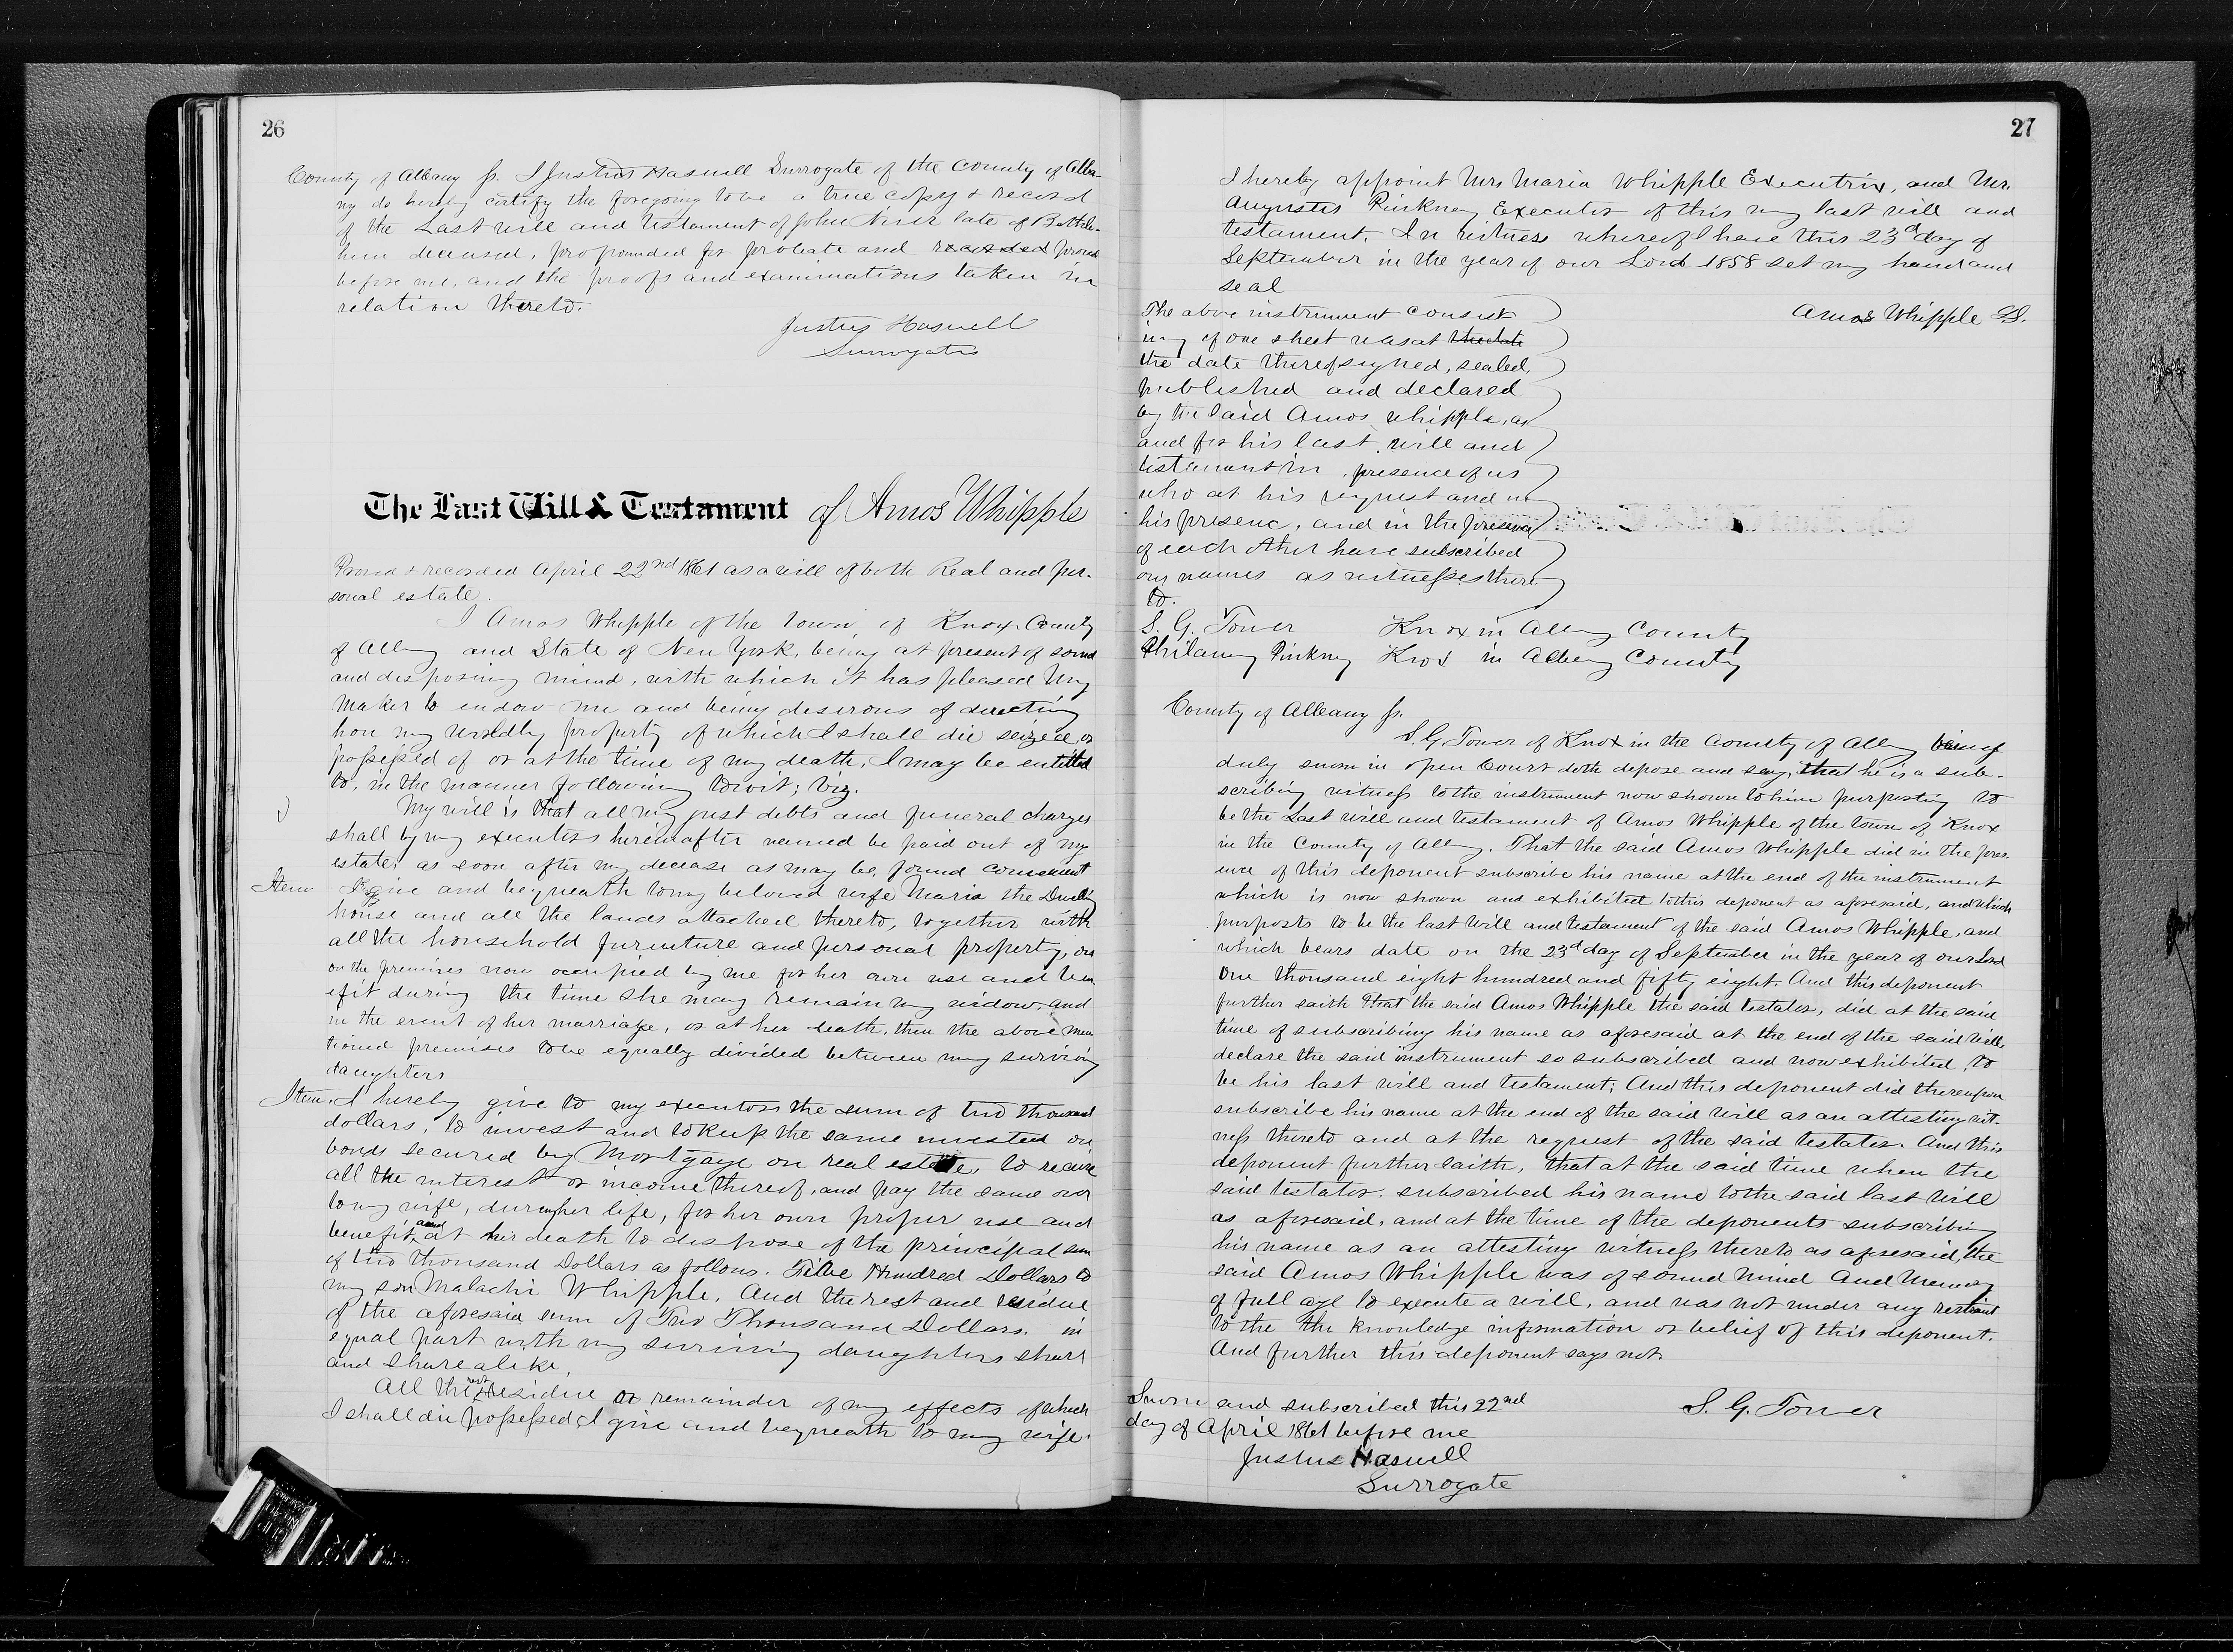 26
County of Albany ss. I Justus Haswell Surrogate of the County of Alba-
ny do hereby certify the foregoing to be a true copy & record
of the Last will and testament of John late of Bethle-
hem deceased, propounded for probate and recorded proved
before me, and the proofs and examinations taken in
relation thereto.
Justus Haswell
Surrogate
The Last Will & Testament of Amos Whipple
Proved & recorded April 22nd 1861 as a will of both Real and per-
sonal estate.
I Amos Whipple of the town of Knox County
of Albany and State of New York, being at present of sound
and disposing mind, with which it has pleased my
Maker to endow me and being desirous of directing
how my worldly property of which I shall die seized or
possessed of or at the time of my death, I may be entitled
to, in the manner following towit; viz.
My will is that all my just debts and funeral charges
shall by my executors hereinafter named be paid out of my
estate, as soon after my decease as may be found convenient
Item I give and bequeath to my beloved wife Maria the Dwelling
house and all the lands attached thereto, together with
all the household furniture and personal property, on
on the premises now occupied by me for her own use and ben
efit during the time she may remain my widow, and
in the event of her marriage, or at her death, then the above men
tioned premises to be equally divided between my surviving
daughters
Item. I hereby give to my executors the sum of two thousand
dollars, to invest and to keep the same invested on
bonds secured by Mortgage on real estate, to receive
all the interest or income thereof, and pay the same over
to my wife, during her life, for her own proper use and
benefit, and at her death to dispose of the principal sum
of two thousand Dollars as follows. Hundred Dollars to
my son Malachi Whipple. And the rest and residue
of the aforesaid sum of Two Thousand Dollars in
equal part with my surviving daughters share
and share alike.
All the rest residue or remainder of my effects of which
I shall die possessed, I give and bequeath to my wife.
27
I hereby appoint Mrs Maria Whipple Executrix, and Mr.
Augustus Pinkney Executor of this my last will and
testament. In witness whereof I have this 23d day of
September in the year of our Lord 1858 set my hand and
seal
Amos Whipple L.S.
The above instrument consist
ing of one sheet was at the date
the date thereof signed, sealed,
published and declared
by the said Amos whipple, as
and for his last will and
testament in presence of us
who at his request and in
his presenc, and in the presence
of each other have subscribed
our names as witnesses there
to.
S. G. Tower Knox in Albany County
Philany Pinkney Knox in Albany County
County of Albany ss.
S. G. Tower of Knox in the County of Albany being
duly sworn in open Court doth depose and say, that he is a sub-
scribing witness to the instrument now shown to him purporting to
be the Last will and testament of Amos Whipple of the town of Knox
in the County of Albany. That the said Amos Whipple did in the pres-
ence of this deponent subscribe his name at the end of the instrument
which is now shown and exhibited to this deponent as aforesaid, and which
purports to be the last will and testament of the said Amos Whipple, and
which bears date on the 23d day of September in the year of our Lord
One thousand eight hundred and fifty eight. And this deponent
further saith that the said Amos Whipple the said testator, did at the said
time of subscribing his name as aforesaid at the end of the said will
declare the said instrument so subscribed and now exhibited, to
be his last will and testament; And this deponent did thereupon
subscribe his name at the end of the said will as an attesting wit-
ness thereto and at the request of the said testator. And this
deponent further saith, that at the said time when the
said testator subscribed his name to the said last will
as aforesaid, and at the time of the deponents subscribing
his name as an attesting witness thereto as aforesaid, the
said Amos Whipple was of sound mind and Memory
of full age to execute a will, and was not under any restraint
to the the knowledge information or belief of this deponent.
And further this deponent says not.
Sworn and subscribed this 22nd
day of April 1861 before me
S. G. Tower
Justus Haswell
Surrogate